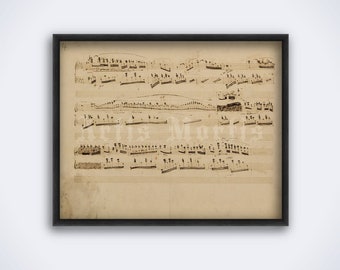 Artis Mortis